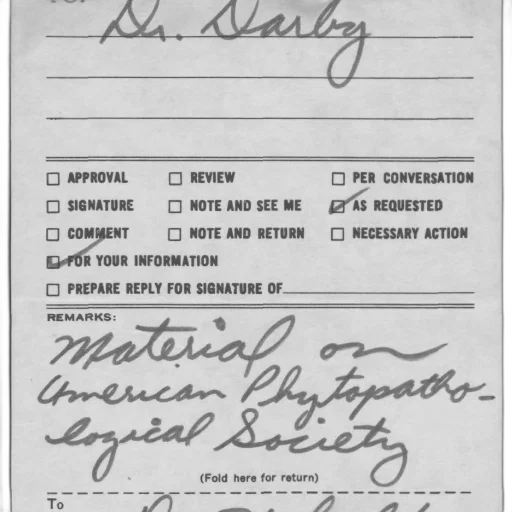 Dr. Darby
☐ APPROVAL ☐ REVIEW ☐ PER CONVERSATION
☐ SIGNATURE ☐ NOTE AND SEE ME ☑ AS REQUESTED
☐ COMMENT ☐ NOTE AND RETURN ☐ NECESSARY ACTION
☑ FOR YOUR INFORMATION
☐ PREPARE REPLY FOR SIGNATURE OF
REMARKS:
Material on
American Phytopatho-
logical Society
(Fold here for return)
To